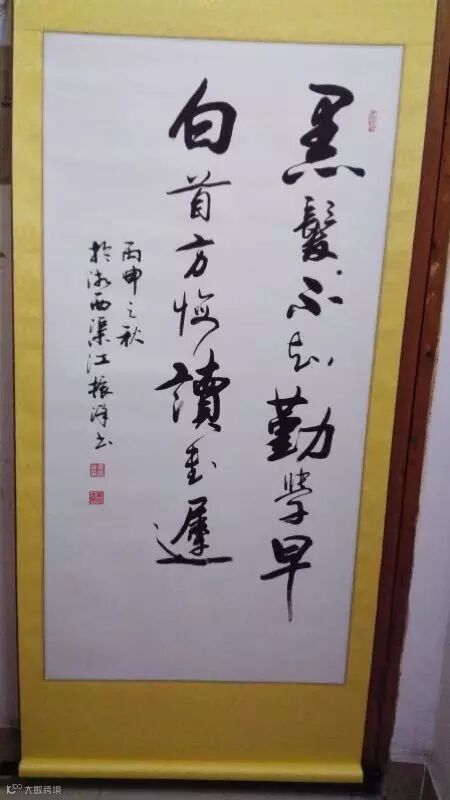 黑髮不知勤學早
白首方悔讀書遲
丙申之秋
於浙西渠江振洋書
大数跨境